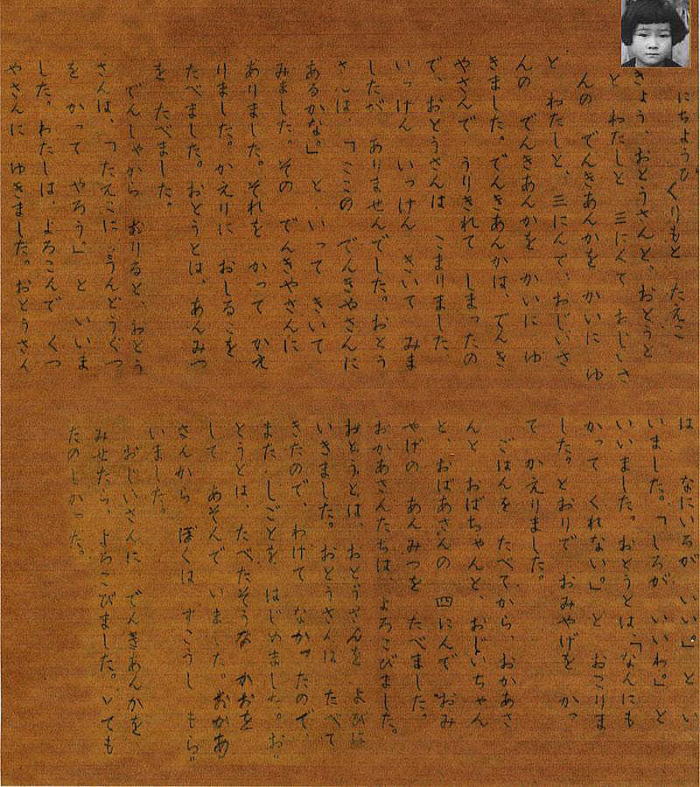 にちようび くりもと たえこ
きょう、おとうさんと、おとうと
と わたしと 三にんで おじいさ
んの でんきあんかを かいに ゆ
と わたしと、三にんで、おじいさ
んの でんきあんかを かいに ゆ
きました。でんきあんかは、でんき
やさんで うりきれて しまったの
で、おとうさんは こまりました
いっけん いっけん きいて みま
したが ありませんでした。おとう
さんは 「ここの でんきやさんに
あるかな。」と いって きいて
みました。その でんきやさんに
ありました。それを かって かえ
りました。かえりに おしるこを
たべました。おとうとは、あんみつ
を たべました。
でんしゃから おりると、おとう
さんは、「たえこに うんどうぐつ
を かって やろう。」と いいま
した。わたしは、よろこんで くつ
やさんに ゆきました。おとうさん
は なにいろが いい」と い
いました。「しろが いいわ。」と
いいました。おとうとは、「なんにも
かって くれない。」と おこりま
した。とおりで おみやげを かっ
て かえりました。
ごはんを たべてから、おかあさ
んと おばちゃんと、おじいちゃん
と、おばあさんの 四にんで おみ
やげの あんみつを たべました。
おかあさんたちは よろこびました。
おとうとは、おとうさんを よびに
いきました。おとうさんは たべて
きたので、わけて なかったので、
また しごとを はじめました。お
とうとは、たべたそうな かおを
して あそんで いました。おかあ
さんから ぼくは すこうし もら
いました。
おじいさんに でんきあんかを
みせたら、よろこびました。とても
たのしかった。